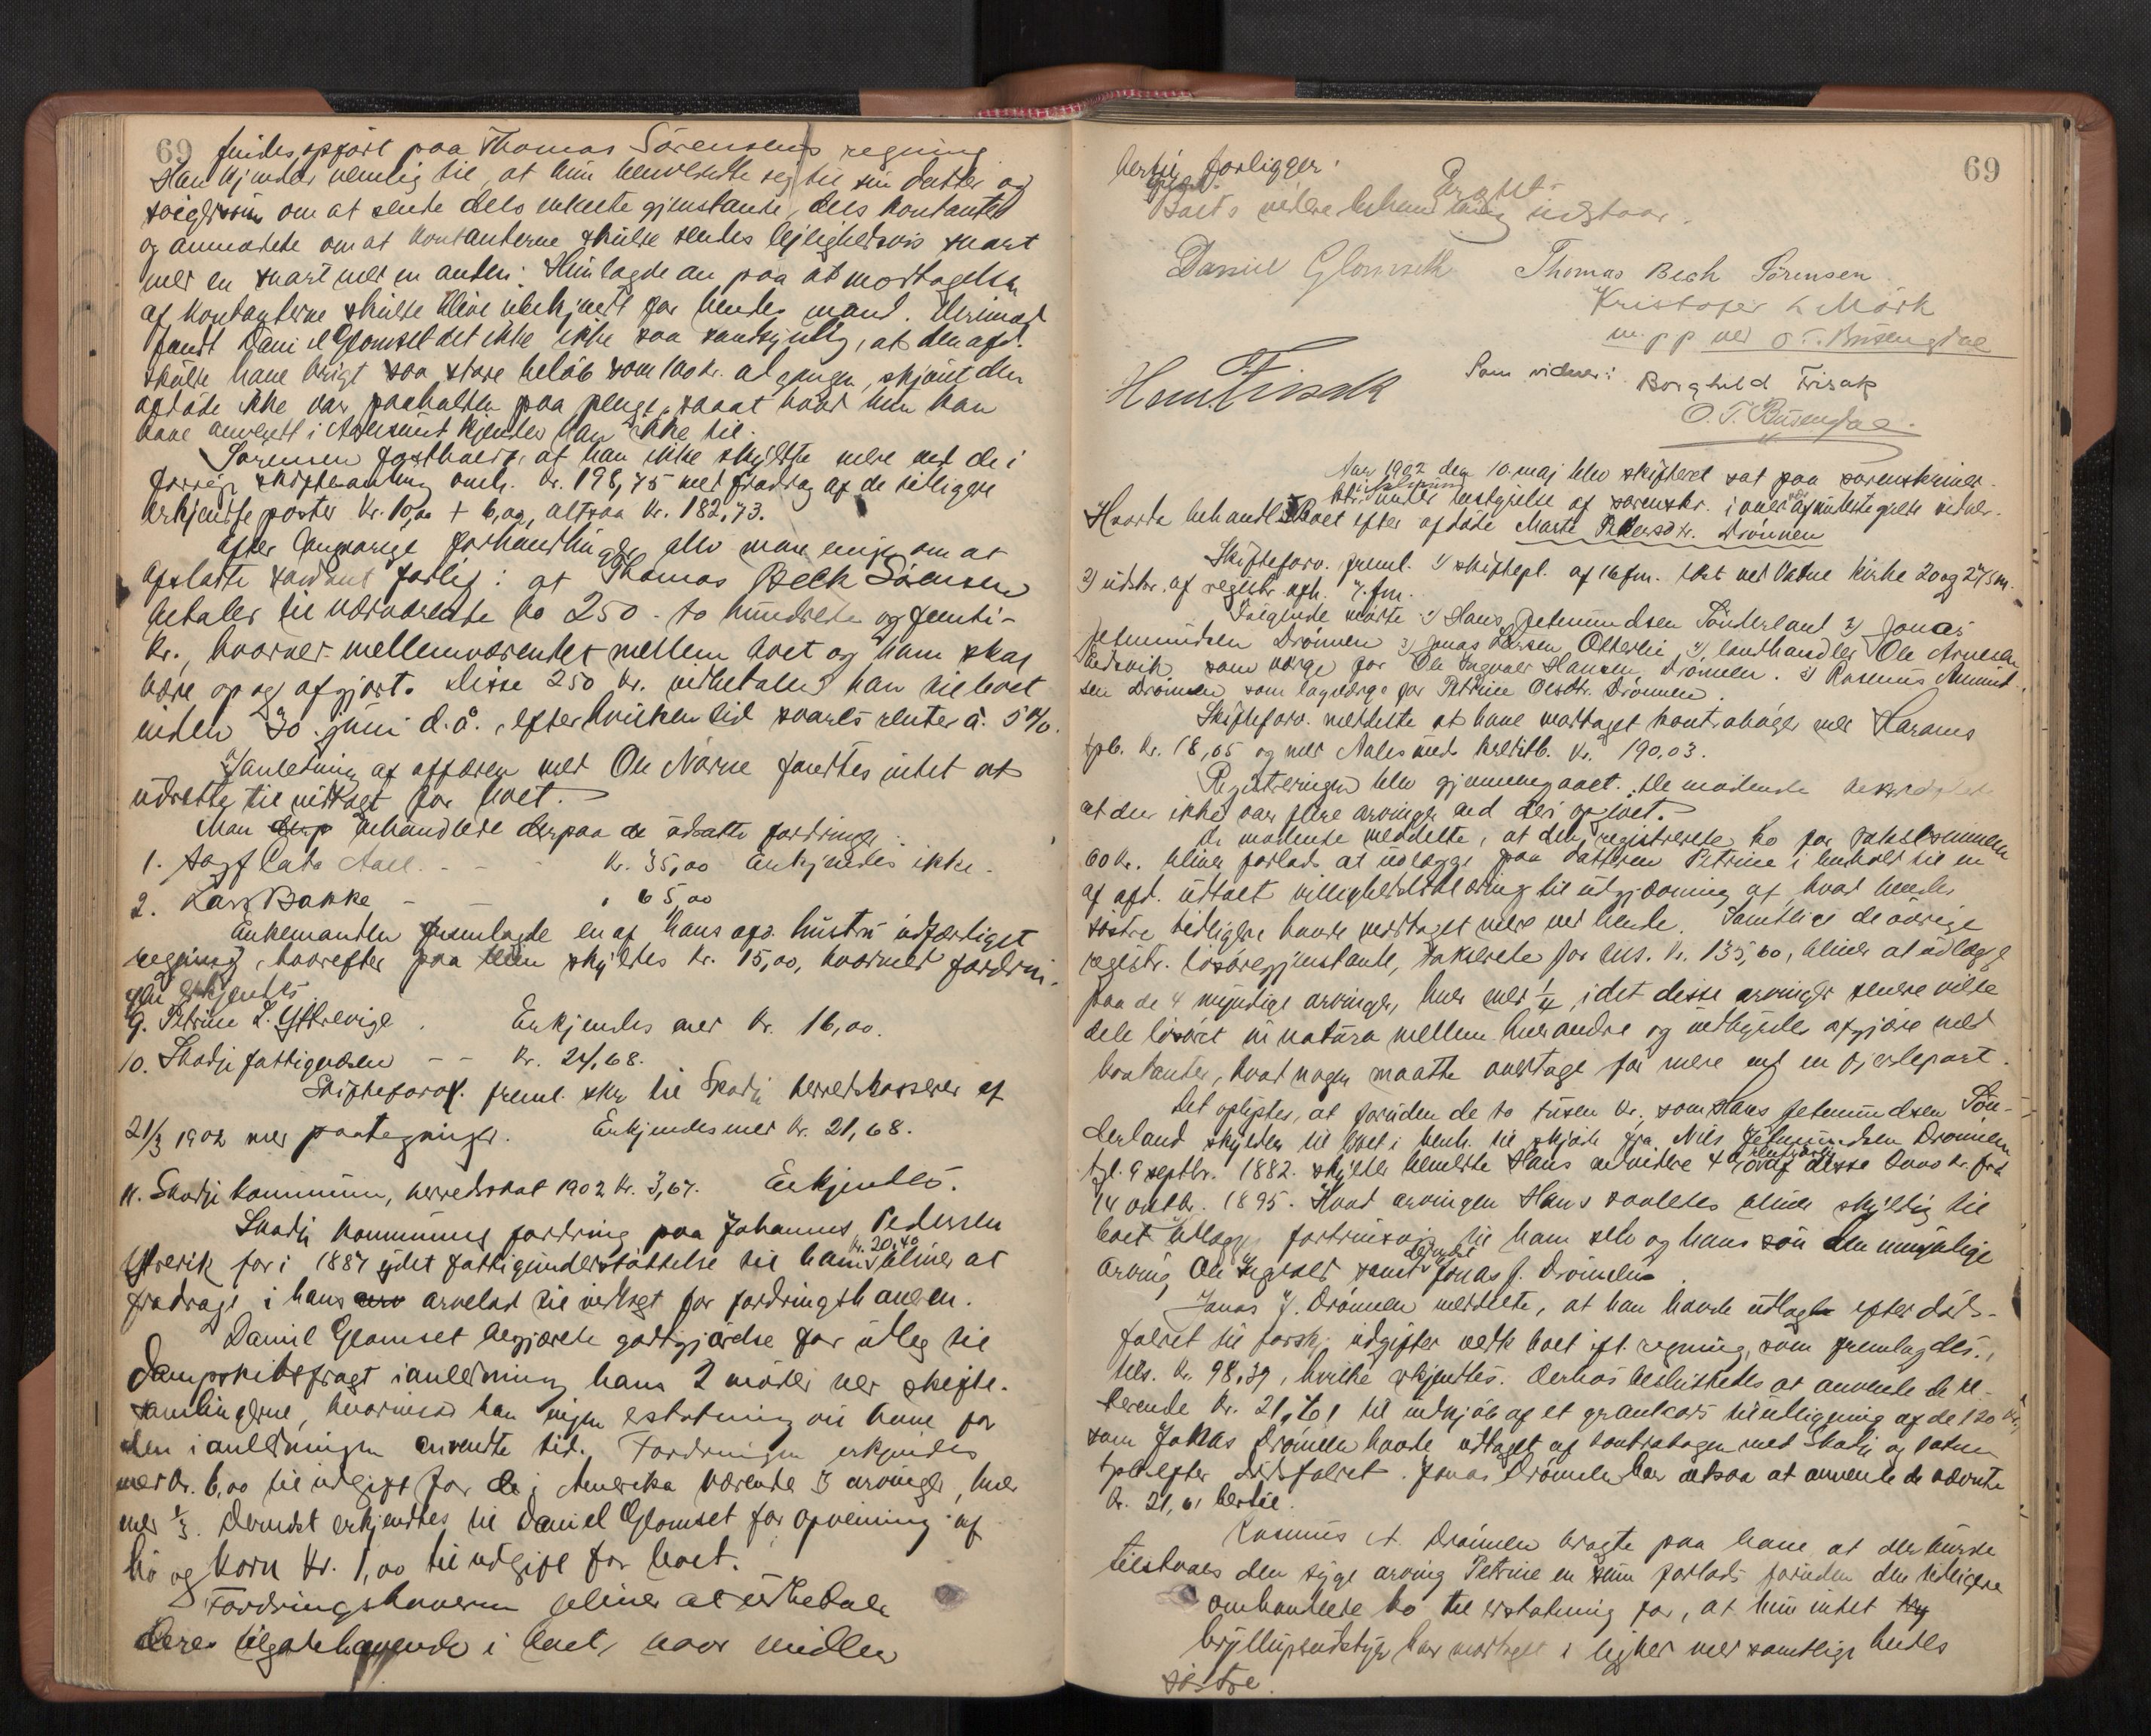 69
findes opført paa Thomas Sørensens regning
Han kjender nemlig til, at hun henvendte sig til sin datter og
svigersøn om at sende dels enkelte gjenstande, dels kontanter
og anmodede om at kontanterne skulde sendes lejlighedsvis snart
med en snart med en anden. Hun lagde an paa at modtagelsen
af kontanterne skulde blive ubekjendt for hendes mand. Derimod
fandt Daniel Glomset det ikke ikke saa sandsynlig, at den afd.
skulde have brugt saa store beløb som 100 kr. ad gangen, skjønt den
afdøde ikke var paaholden paa penge, saaat hvad hun kan
have anvendt i Aalesund kjender han ikke til.
Sørensen fastholdt, at han ikke skyldte mere end de i
forrige skiftesamling omh. kr. 198,75 med fradrag af de tidligere
erkjendte poster kr. 10,00 + 6,00, altsaa kr. 182,73.
Efter langvarige forhandlinger blev man enige om at
afslutte saadant forlig: at Thomas Bech Sørensen
betaler til nærværende bo 250 - to hundrede og femti -
kr., hvorved mellemværendet mellem boet og ham skal
være op og afgjort. Disse 250 kr. indbetaler han til boet
inden 30. juni d.å., efter hvilken tid svares renter à 5 %.
I anledning af affæren med Ole Nørve fandtes intet at
udrette til indtægt for boet.
Man behandlede derpaa de udsatte fordringer:
1. Sagf Cato Aall - - - kr. 35,00 Erkjendes ikke.
2. Lars Bakke - - " 65,00
Enkemanden fremlagde en af hans afd. hustru udfærdiget
regning, hvorefter paa den skyldes kr. 15,00, hvormed fordrin-
gen erkjendtes
9. Petrine L. Yttrevige . Erkjendes med kr. 16,00.
10. Skodje fattigvæsen - - kr. 24,68.
Skifteforv. freml. skr. til Skodje herredskasserer af
21/3 1902 med paategninger. Erkjendes med kr. 21,68.
11. Skodje kommune, herredsskat 1902 kr. 3,67. Erkjendes.
Skodje kommunes fordring paa Johannes Pedersen
kr. 20,40
Ytrevik for i 1887 ydet fattigunderstøttelse til ham bliver at
fradrage i hans arvelod til indtægt for fordringshaveren.
Daniel Glomset begjærede godtgjørelse for udlæg til
dampskibsfragt i anledning hans 2 møder ved skifte-
samlingerne, hvorimod han ingen erstatning vil have for
den i anledningen anvendte tid. Fordringen erkjendes
med kr. 6,00 til udgift for de i Amerika værende 3 arvinger, hver
med 1/3. Derimod erkjendtes til Daniel Glomset for opveining af
hø og korn kr. 1,00 til udgift for boet.
Fordringshaverne bliver at udbetale
deres tilgodehavende i boet, naar midler
69
hertil foreligger.
Boets videre behandling udstaar.
Daniel Glomseth Thomas Bech Sørensen
Kristofer L Mørk
m.p.p ved O. T. Busengdal
Henr. Frisak Som vidner: Borghild Frisak
O. T. Busengdal.
Aar 1902 den 10. maj blev skifteret sat paa sorenskriver-
ktr. under bestyrelse af sorenskr. i overvær af undertegnede vidner.
Hvorda behandl. Boet efter afdøde Marte Pedersdtr. Drønnen
Skifteforv. freml. 1/ skiftepl. af 16 f.m. læst ved Vatne kirke 20 og 27/3 m.
2/ udskr. af registr. oph. 7. f.m.
Følgende mødte 1/ Hans Jetmundsen Sønderland 2/ Jonas
Jetmundsen Drønnen 3/ Jonas Larsen Otterlei 4/ landhandler Ole Arnesen
Eidsvik som værge for Ole Ingvald Hansen Drønnen. 5/ Rasmus Amund-
sen Drønnen som lagværge for Petrine Olsdtr. Drønnen.
Skifteforv. meddelte at have modtaget kontrabøger med Harams
spb. kr. 18,65 og med Aalesunds kreditb. kr. 190,03.
Registreringen blev gjennemgaaet. De mødende bekræftede
at der ikke var flere arvinger end der opgivet.
De mødende meddelte, at den registrerede ko for takstsummen
60 kr. bliver forlods at udlægge paa datteren Petrine i henhold til en
af afd. udtalt villighedserklæring til udgjævning af, hvad hendes
søstre tidligere havde modtaget mere end hende. Samtlige de øvrige
registr. løsøregjenstande, takserede for tils. kr. 135,60, bliver at udlægge
paa de 4 myndige arvinger, hver med 1/4, idet disse arvinger senere vilde
dele løsøret in natura mellem hverandre og indbyrdes afgjøre med
kontanter, hvad nogen maatte overtage for mere end en fjerdepart.
Det oplystes, at foruden de to tusen kr., som Hans Jetmundsen Søn-
derland skylder til boet i henh. til skjøde fra Nils Jetmundsen Drønnen
tgl. 9 septbr. 1882. skylder bemeldte Hans endvidere 4 % af disse 2000 kr. fra
14 oktbr. 1895. Hvad arvingen Hans saaledes bliver skyldig til
boet udlægges fortrinsvis til ham selv og hans søn den umyndige
arving Ole Ingvald samt dernæst Jonas J. Drønnen.
Jonas J. Drønnen meddelte, at han havde udlagt efter døds-
faldet til forsk. udgifter vedk. boet ifl. regning, som fremlagdes,
tils. kr. 98,39, hvilke erkjendtes. Derhos besluttedes at anvende de re-
sterende kr. 21,61 til indkjøb af et gravkors til udligning af de 120 kr.,
som Jonas Drønnen havde udtaget af kontrabogen med Skodje og Vatne
spb. efter dødsfaldet. Jonas Drønnen har altsaa at anvende de nævnte
kr. 21,61 hertil.
Rasmus A. Drønnen bragte paa bane at der burde
tilstaaes den syge arving Petrine en sum forlods foruden den tidligere
omhandlede ko til erstatning for, at hun intet
bryllupsudstyr har modtaget i lighed med samtlige hendes
søstre.